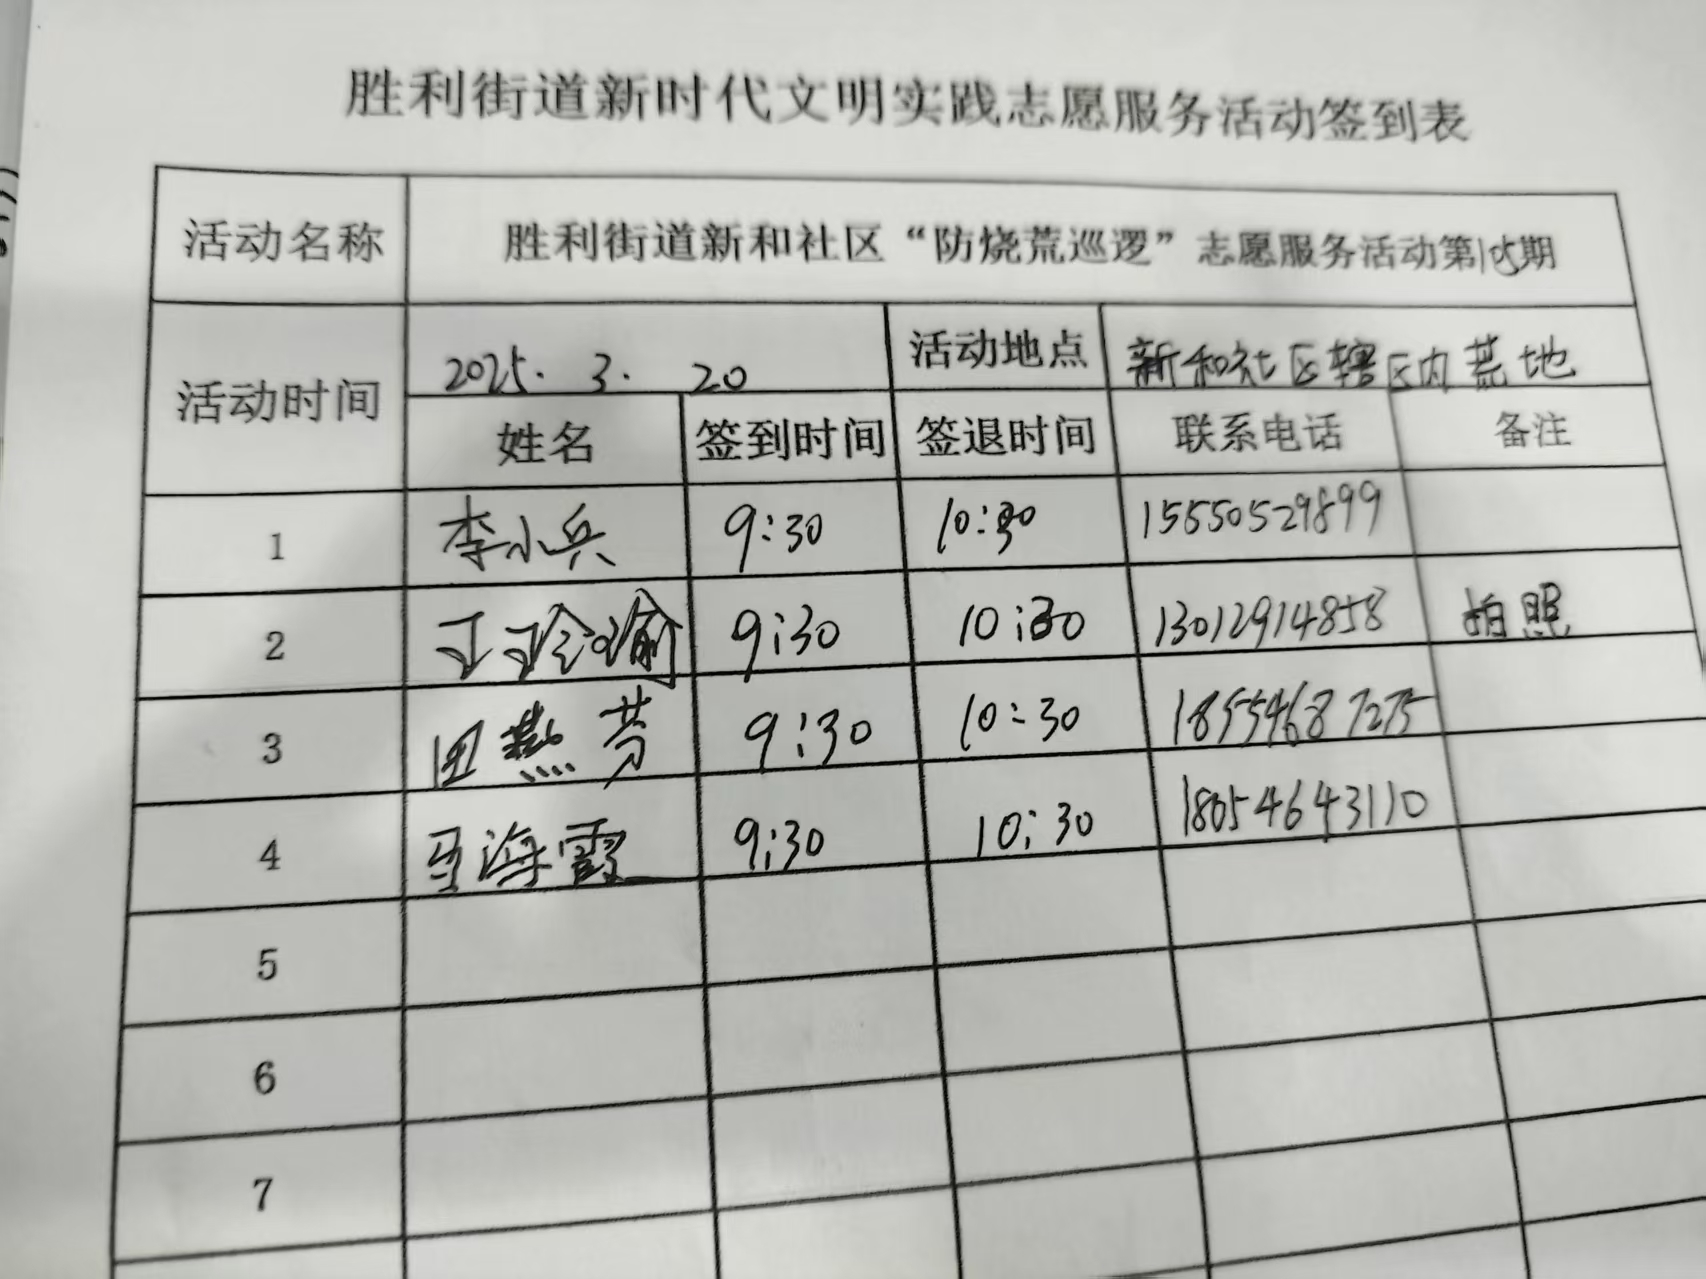 胜利街道新时代文明实践志愿服务活动签到表
活动名称 胜利街道新和社区“防烧荒巡逻”志愿服务活动第105期
活动时间 2025.3.20 活动地点 新和社区辖区内荒地
姓名 签到时间 签退时间 联系电话 备注
1 李小兵 9:30 10:30 15550529899
2 9:30 10:30 13012914858 拍照
3 田燕芬 9:30 10:30 18554687275
4 马海霞 9:30 10:30 18054643110
5
6
7